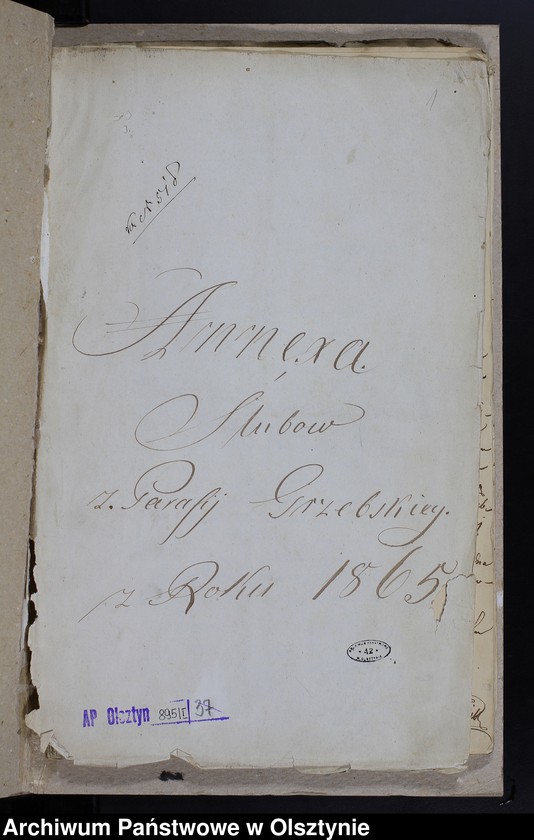 Annexa.
Slubow
z. Parafij Grzebskiey.
z Roku 1865
AP Olsztyn 895/I 37
Archiwum Państwowe w Olsztynie